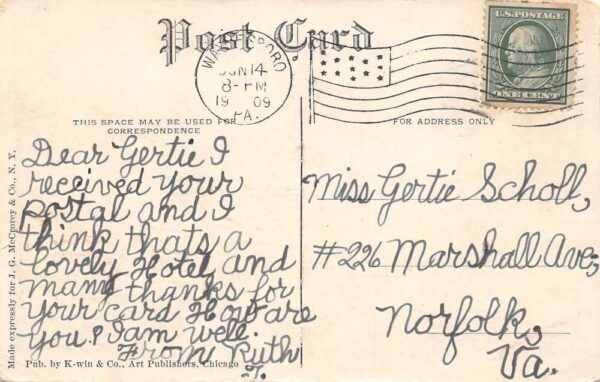 Post Card
WAYNESBORO
JUN 14
8-PM
1909
PA.
U.S. POSTAGE
ONE CENT
THIS SPACE MAY BE USED FOR
CORRESPONDENCE
FOR ADDRESS ONLY
Dear Gertie I
received your
postal and I
think thats a
lovely Hotel and
many thanks for
your card How are
you? I am well.
From Ruth
T.
Miss Gertie Scholl,
#226 Marshall Ave,
Norfolk,
Va.
Made expressly for J. G. McCrorey & Co., N. Y.
Pub. by K-win & Co., Art Publishers, Chicago